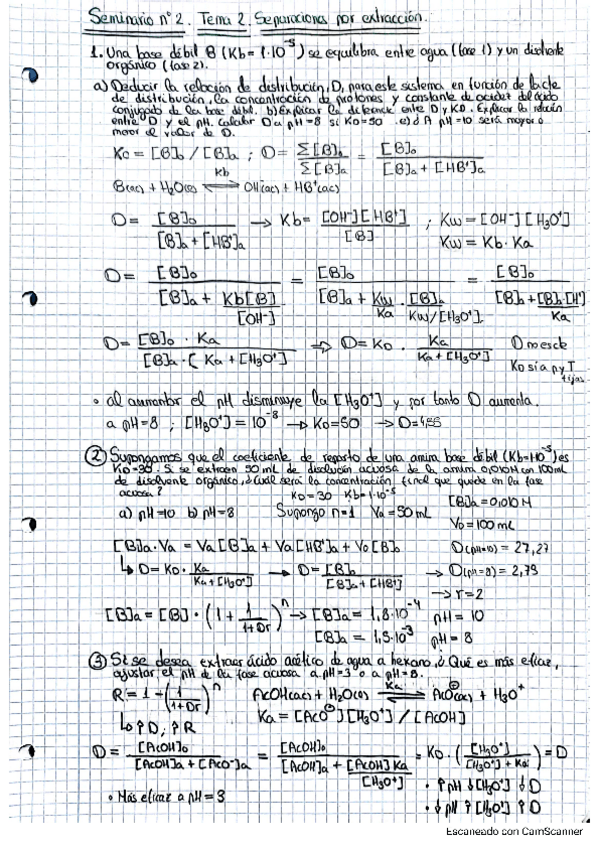 Seminario nº 2. Tema 2. Separaciones por extracción.
1. Una base débil B (Kb = 1·10⁻⁵) se equilibra entre agua (fase 1) y un disolvente
orgánico (fase 2).
a) Deducir la relación de distribución, D, para este sistema en función de la cte
de distribución, la concentración de protones y constante de acidez del ácido
conjugado de la base débil. b) Explicar la diferencia entre D y KD. Explicar la relación
entre D y el pH. Calcular D a pH=8 si KD=50. c) ¿A pH=10 será mayor o
menor el valor de D.
KD = [B]o / [B]a ; D = Σ[B]o / Σ[B]a = [B]o / [B]a + [HB⁺]a
B(ac) + H₂O(l) ⇌ OH⁻(ac) + HB⁺(ac)
Kb
D = [B]o / [B]a + [HB⁺]a → Kb = [OH⁻][HB⁺] / [B] ; Kw = [OH⁻][H₃O⁺]
Kw = Kb·Ka
D = [B]o / [B]a + Kb[B] / [OH⁻] = [B]o / [B]a + Kw / Ka · [B]a / Kw/[H₃O⁺] = [B]o / [B]a + [B]a·[H⁺] / Ka
D = [B]o · Ka / [B]a · (Ka + [H₃O⁺]) ⇒ D = KD · Ka / Ka + [H₃O⁺] D no es cte
KD si a p y T
fijas
• al aumentar el pH disminuye la [H₃O⁺] y por tanto D aumenta.
a pH=8 ; [H₃O⁺] = 10⁻⁸ → KD=50 → D=4,55
② Supongamos que el coeficiente de reparto de una amina base débil (Kb=1·10⁻⁵) es
KD=30. Si se extraen 50 mL de disolución acuosa de la amina 0,010M con 100mL
de disolvente orgánico, ¿cuál será la concentración final que quede en la fase
acuosa?
KD=30 Kb=1·10⁻⁵ [B]a=0,010M
a) pH=10 b) pH=8 Supongo n=1 Va=50mL
Vo=100mL
[B]a·Va = Va[B]a + Va[HB⁺]a + Vo[B]o D(pH=10) = 27,27
↳ D = KD · Ka / Ka + [H₃O⁺] → D = [B]o / [B]a + [HB⁺] → D(pH=8) = 2,73
→ r = 2
[B]a = [B] · (1 + 1 / 1+Dr)ⁿ → [B]a = 1,8·10⁻⁴ pH = 10
[B]a = 1,5·10⁻³ pH = 8
③ Si se desea extraer ácido acético de agua a hexano, ¿Qué es más eficaz,
ajustar el pH de la fase acuosa a pH=3 o a pH=8.
R = 1 - (1 / 1+Dr)ⁿ AcOH(ac) + H₂O(l) ⇌ AcO⁻(ac) + H₃O⁺
Ka
↳ ↑D, ↑R Ka = [AcO⁻][H₃O⁺] / [AcOH]
D = [AcOH]o / [AcOH]a + [AcO⁻]a = [AcOH]o / [AcOH]a + [AcOH]Ka / [H₃O⁺] = KD · ([H₃O⁺] / [H₃O⁺] + Ka) = D
• ↑pH ↓[H₃O⁺] ↓D
• Más eficaz a pH=3 • ↓pH ↑[H₃O⁺] ↑D
Escaneado con CamScanner